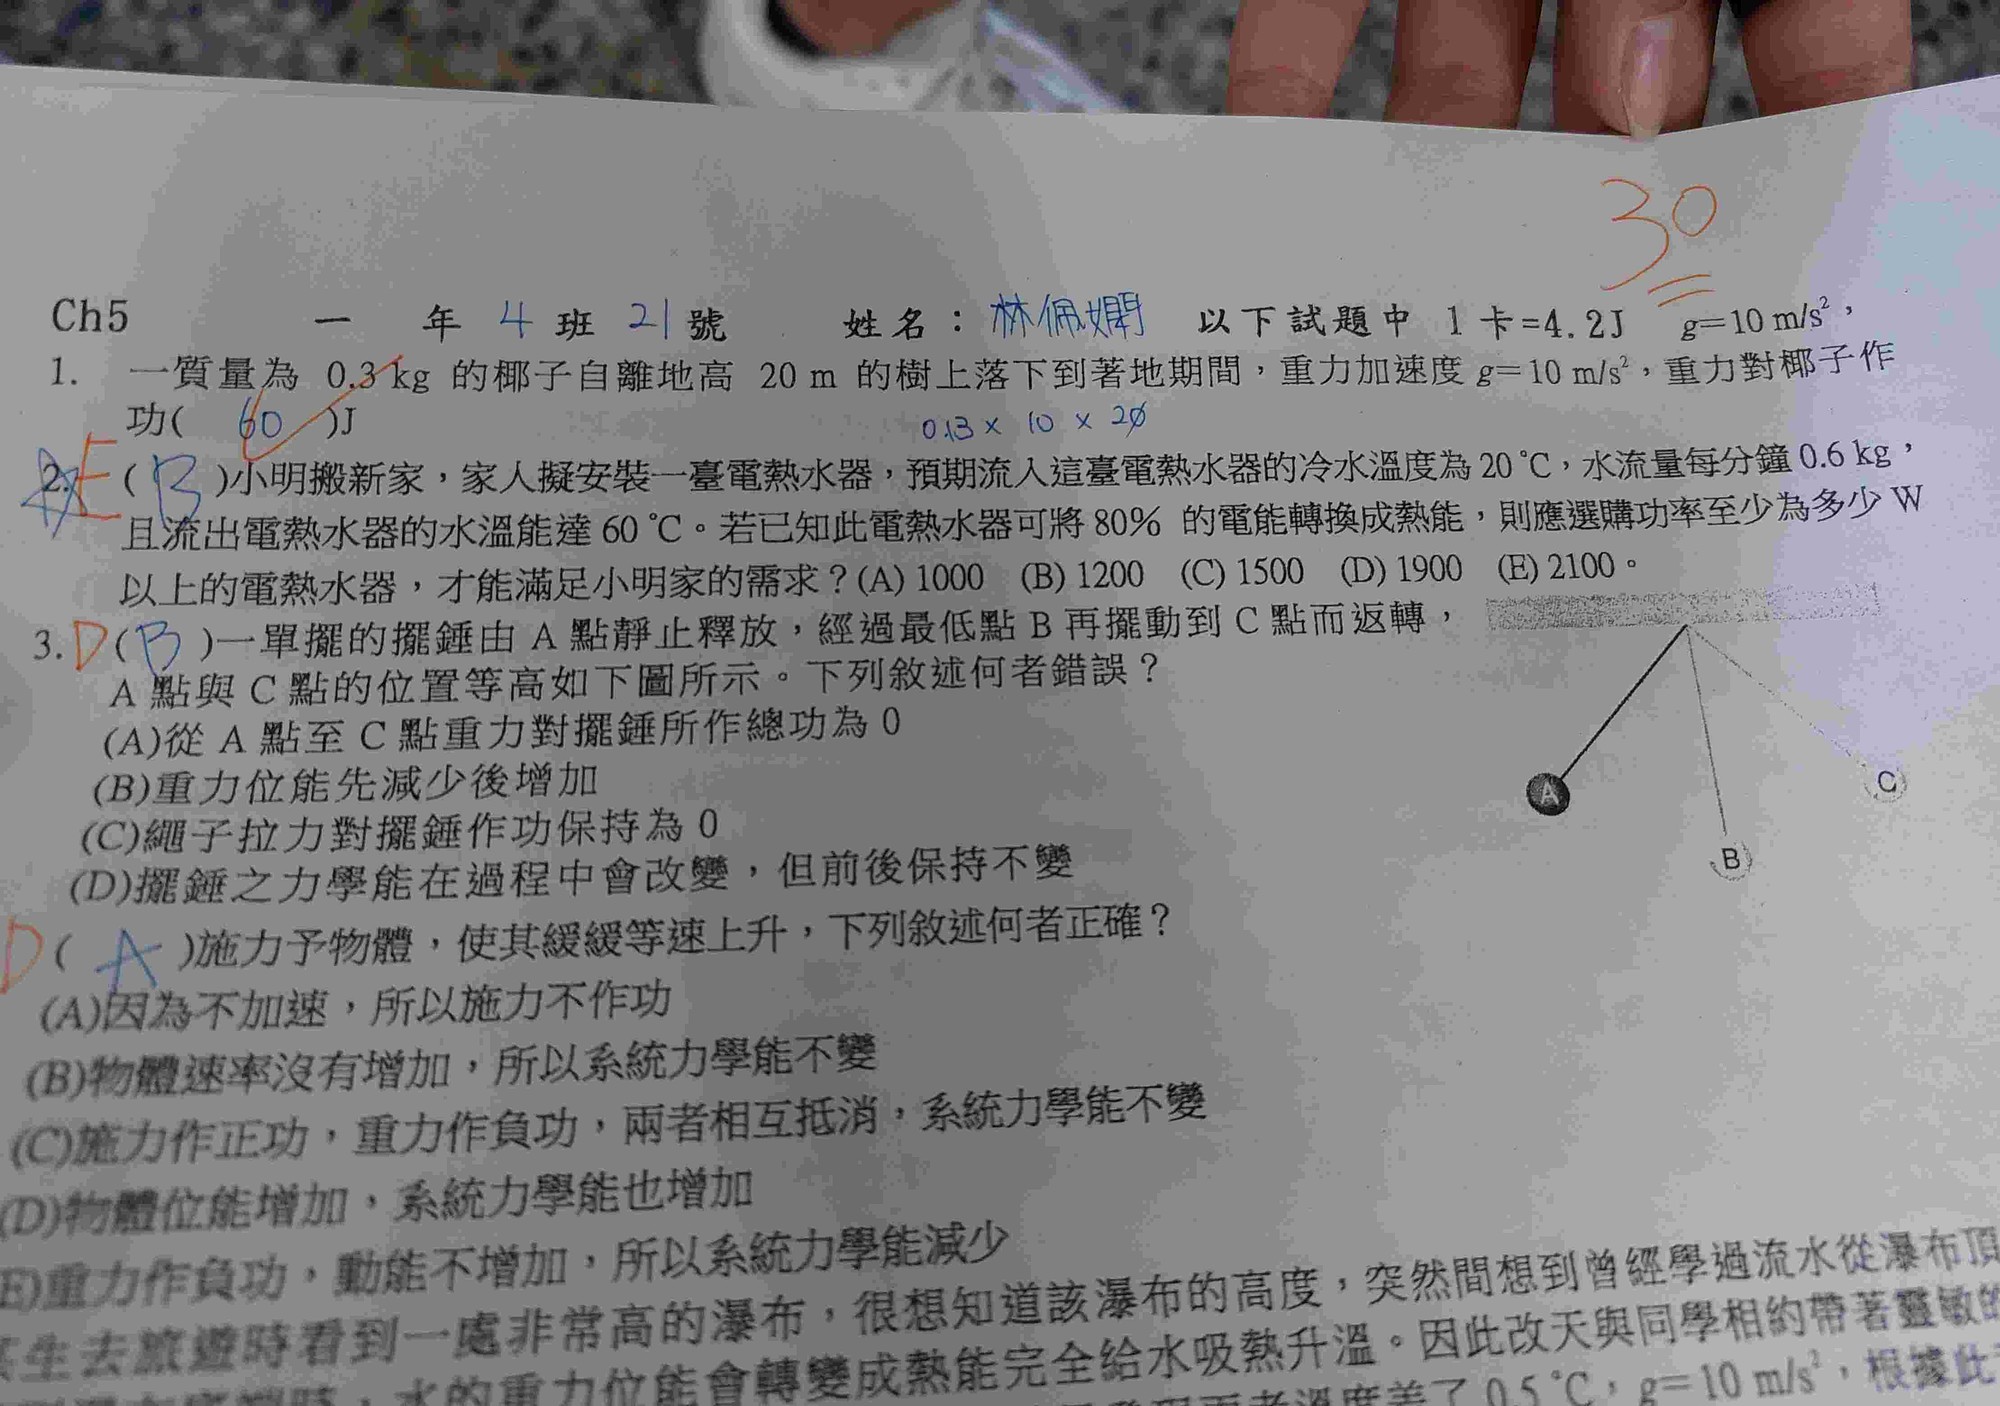 30
Ch5 一 年 4 班 21 號 姓名：林佩嫻 以下試題中 1卡=4.2J g=10 m/s²，
1. 一質量為 0.3 kg 的椰子自離地高 20 m 的樹上落下到著地期間，重力加速度 g=10 m/s²，重力對椰子作
功( 60 )J 0.3 × 10 × 20
2. E ( B )小明搬新家，家人擬安裝一臺電熱水器，預期流入這臺電熱水器的冷水溫度為 20 ℃，水流量每分鐘 0.6 kg，
且流出電熱水器的水溫能達 60 ℃。若已知此電熱水器可將 80% 的電能轉換成熱能，則應選購功率至少為多少 W
以上的電熱水器，才能滿足小明家的需求？(A) 1000 (B) 1200 (C) 1500 (D) 1900 (E) 2100。
3. D ( B )一單擺的擺錘由 A 點靜止釋放，經過最低點 B 再擺動到 C 點而返轉，
A 點與 C 點的位置等高如下圖所示。下列敘述何者錯誤？
(A)從 A 點至 C 點重力對擺錘所作總功為 0
(B)重力位能先減少後增加
(C)繩子拉力對擺錘作功保持為 0
(D)擺錘之力學能在過程中會改變，但前後保持不變
A
B
C
D ( A )施力予物體，使其緩緩等速上升，下列敘述何者正確？
(A)因為不加速，所以施力不作功
(B)物體速率沒有增加，所以系統力學能不變
(C)施力作正功，重力作負功，兩者相互抵消，系統力學能不變
(D)物體位能增加，系統力學能也增加
E)重力作負功，動能不增加，所以系統力學能減少
生去旅遊時看到一處非常高的瀑布，很想知道該瀑布的高度，突然間想到曾經學過流水從瀑布頂
時，水的重力位能會轉變成熱能完全給水吸熱升溫。因此改天與同學相約帶著靈敏的
溫度差了 0.5 ℃，g=10 m/s²，根據此